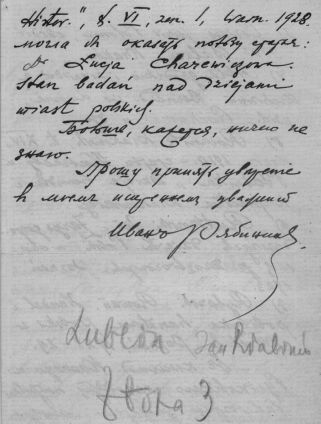 Histor.", t. VI, zesz. 1, Warsz. 1928.
могла бы оказать пользу статья:
dr Łucja Charewiczowa.
Stan badań nad dziejami
miast polskich.
Больше, кажется, ничего не
знаю.
Прошу принять уверение
въ моемъ искреннемъ уважении
Иванъ Рябининъ
Lublin Jan Riabinin
3